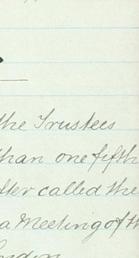 the Trustees
than one fifth
after called the
a Meeting of th
London